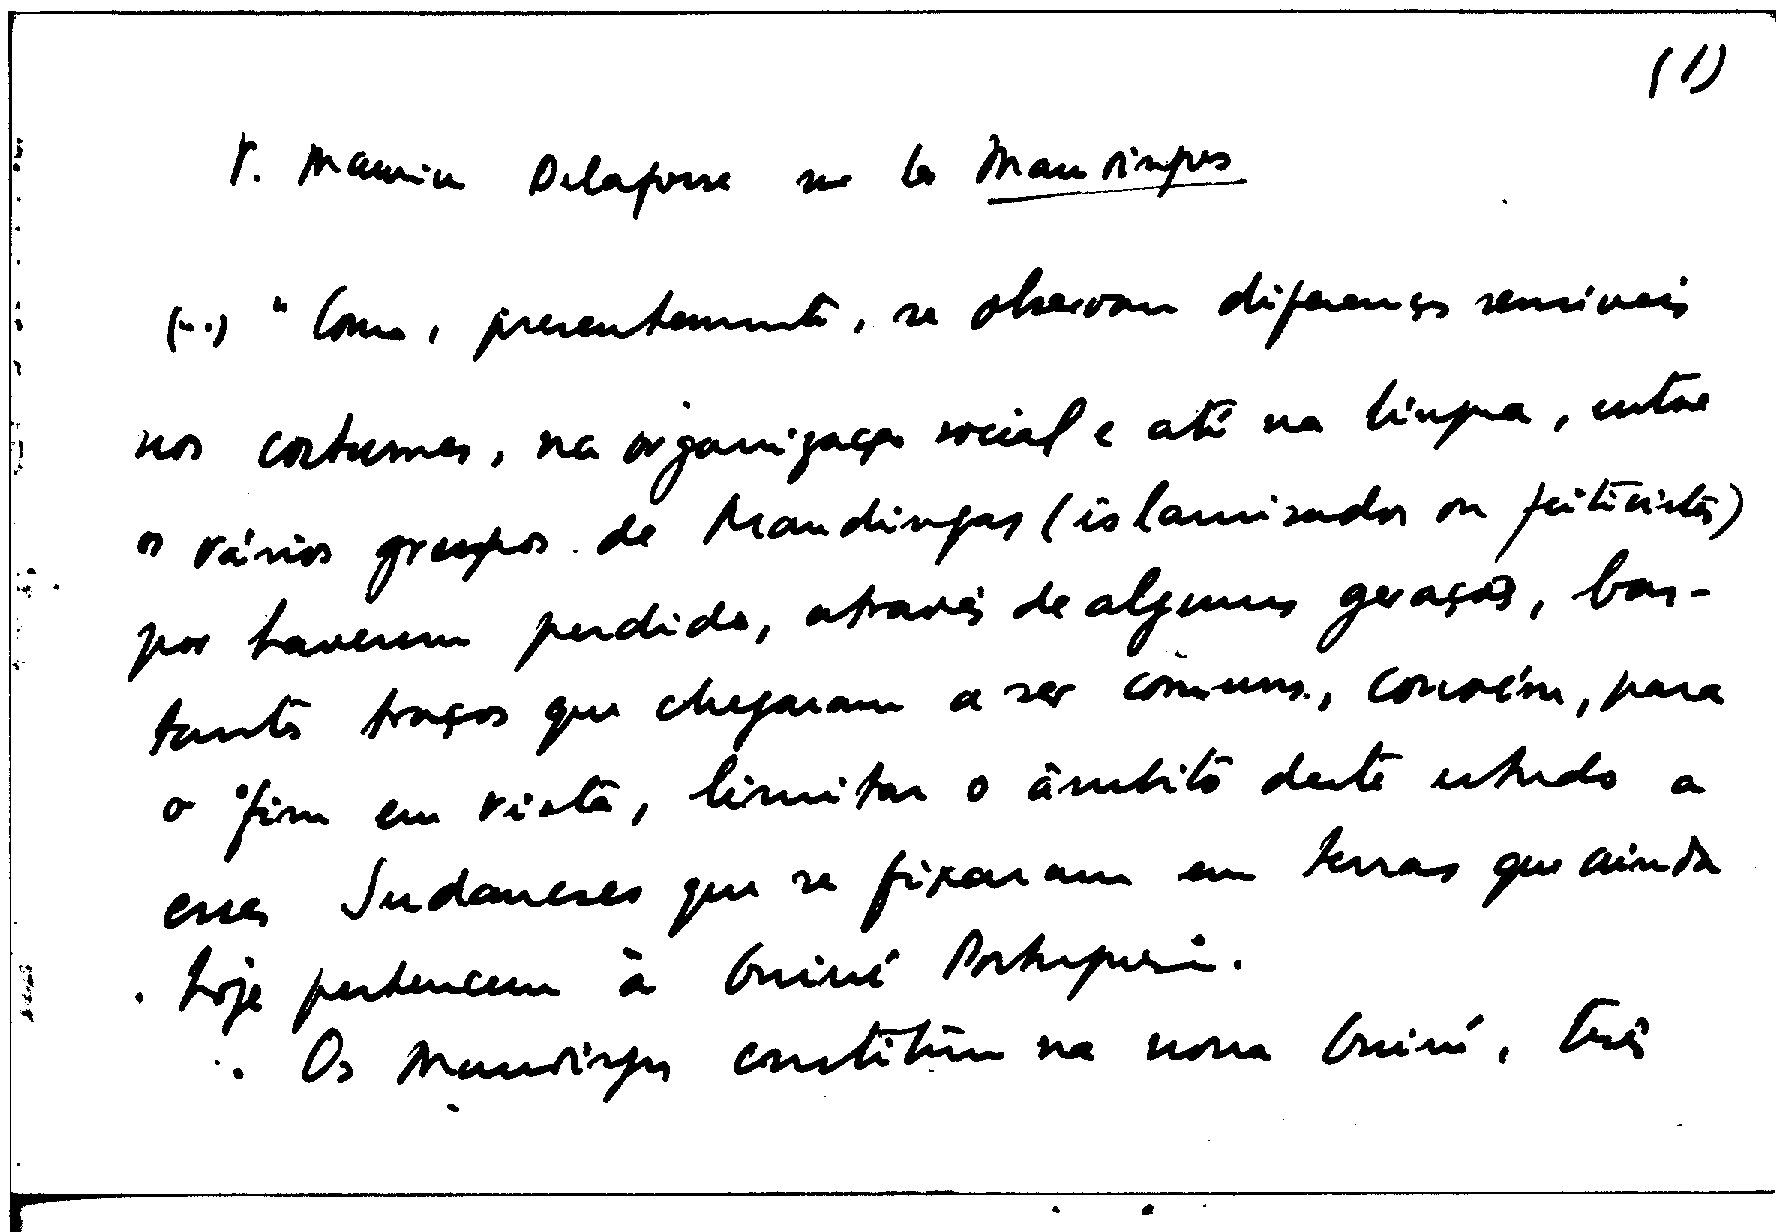 (1)
V. Maurice Delafosse sur les Mandingues
(...) "Como, presentemente, se observam diferenças sensíveis
nos costumes, na organização social e até na língua, entre
os vários grupos de Mandingas (islamizados ou feiticistas)
por haverem perdido, através de algumas gerações, bas-
tantes traços que chegaram a ser comuns, convém, para
o fim em vista, limitar o âmbito deste estudo a
esses Sudaneses que se fixaram em terras que ainda
hoje pertencem à Guiné Portuguesa.
Os Mandingas constituem na nossa Guiné, três